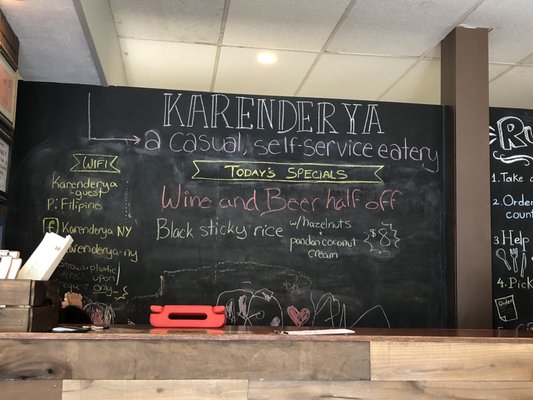 KARENDERYA
a casual, self-service eatery
WIFI
Karenderya
-guest
P: Filipino
f Karenderya NY
Karenderya-ny
plastic
upon
request only
TODAY'S SPECIALS
Wine and Beer half off
Black sticky rice
w/hazelnuts
pandan coconut
cream
$8
1. Take
2. Order
count
3. Help
4. Pick